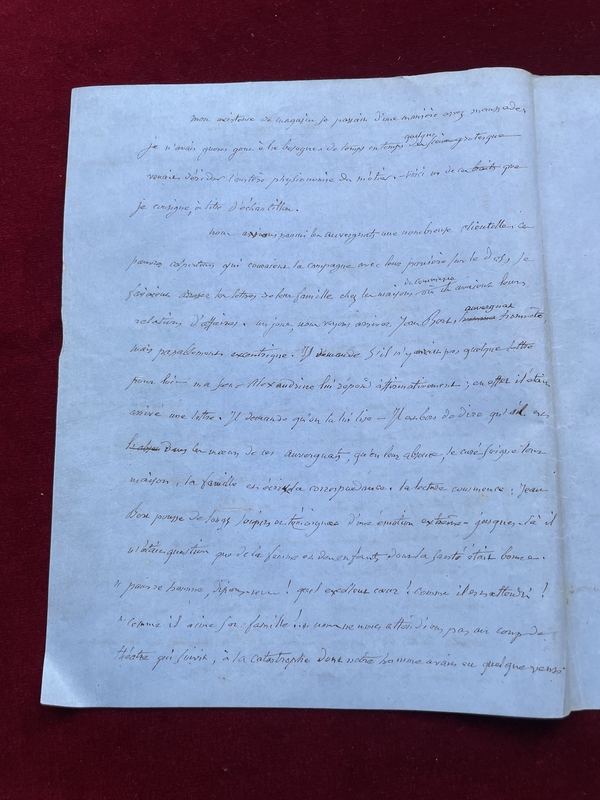 mon existence de magasin se passait d'une manière assez maussade,
je n'avais guères goût à la besogne. de temps en temps quelque scène grotesque
venait dérider l'austère physionomie du métier. voici un de ces traits que
je consigne, à titre d'échantillon.
nous avions parmi les auvergnats une nombreuse clientelle: ces
pauvres colporteurs qui couraient la campagne avec leur pauvre sur le dos, se
faisaient adresser les lettres de leur famille chez les maisons de commerce où ils avaient leurs
relations d'affaires. un jour, nous voyons arriver Jean Bort, auvergnat honnête
mais passablement excentrique. Il demande s'il n'y avait pas quelque lettre
pour lui — ma sœur Alexandrine lui répond affirmativement; en effet il était
arrivé une lettre. Il demande qu'on la lui lise — Il est bon de dire qu'il est
dans les mœurs de ces auvergnats, qu'en leur absence, le curé soigne leur
maison, la famille et écrit la correspondance. la lecture commence; Jean
Bort pousse de longs soupirs et témoigne d'une émotion extrême — jusques là il
n'était question que de la femme et des enfants dont la santé était bonne.
"pauvre homme, disons-nous! quel excellent cœur! comme il est attendri!
"comme il aime sa famille! nous ne nous attendions pas au coup de
théâtre qui suivit, à la catastrophe dont notre homme avait eu quelque